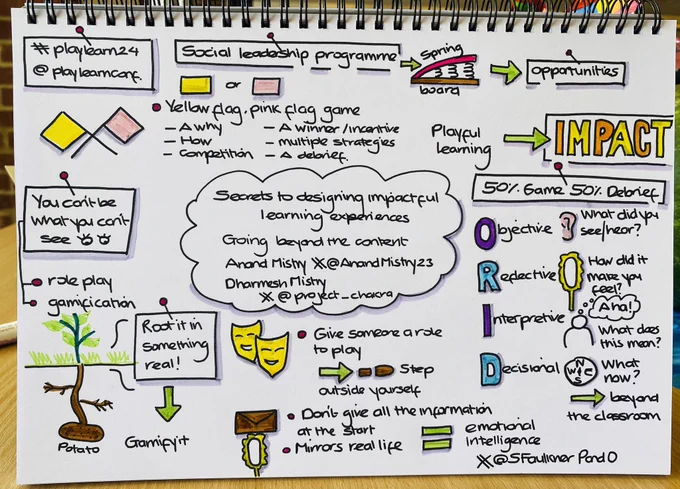 # playlearn24
@playlearnconf.
Social leadership programme
Spring
board
opportunities
or
Yellow flag, pink flag game
- A why
- How
- Competition
- A winner/incentive
- multiple strategies
- A debrief.
Playful
Learning
IMPACT
You can't be
what you can't
see
role play
gamification
Secrets to designing impactful
learning experiences
Going beyond the content
Anand Mistry X@AnandMistry23
Dharmesh Mistry
X @project_chakra
50% Game 50% Debrief
Objective
What did you
see/hear?
Reflective
How did it
make you
feel?
Aha!
Interpretive
What does
this mean?
Decisional
N
W E
S
What
now?
beyond
the classroom
Root it in
something
real!
Potato
Gamify it
Give someone a role
to play
Step
outside yourself
Don't give all the information
at the start
Mirrors real life
emotional
intelligence
X@SFaulknerPandO